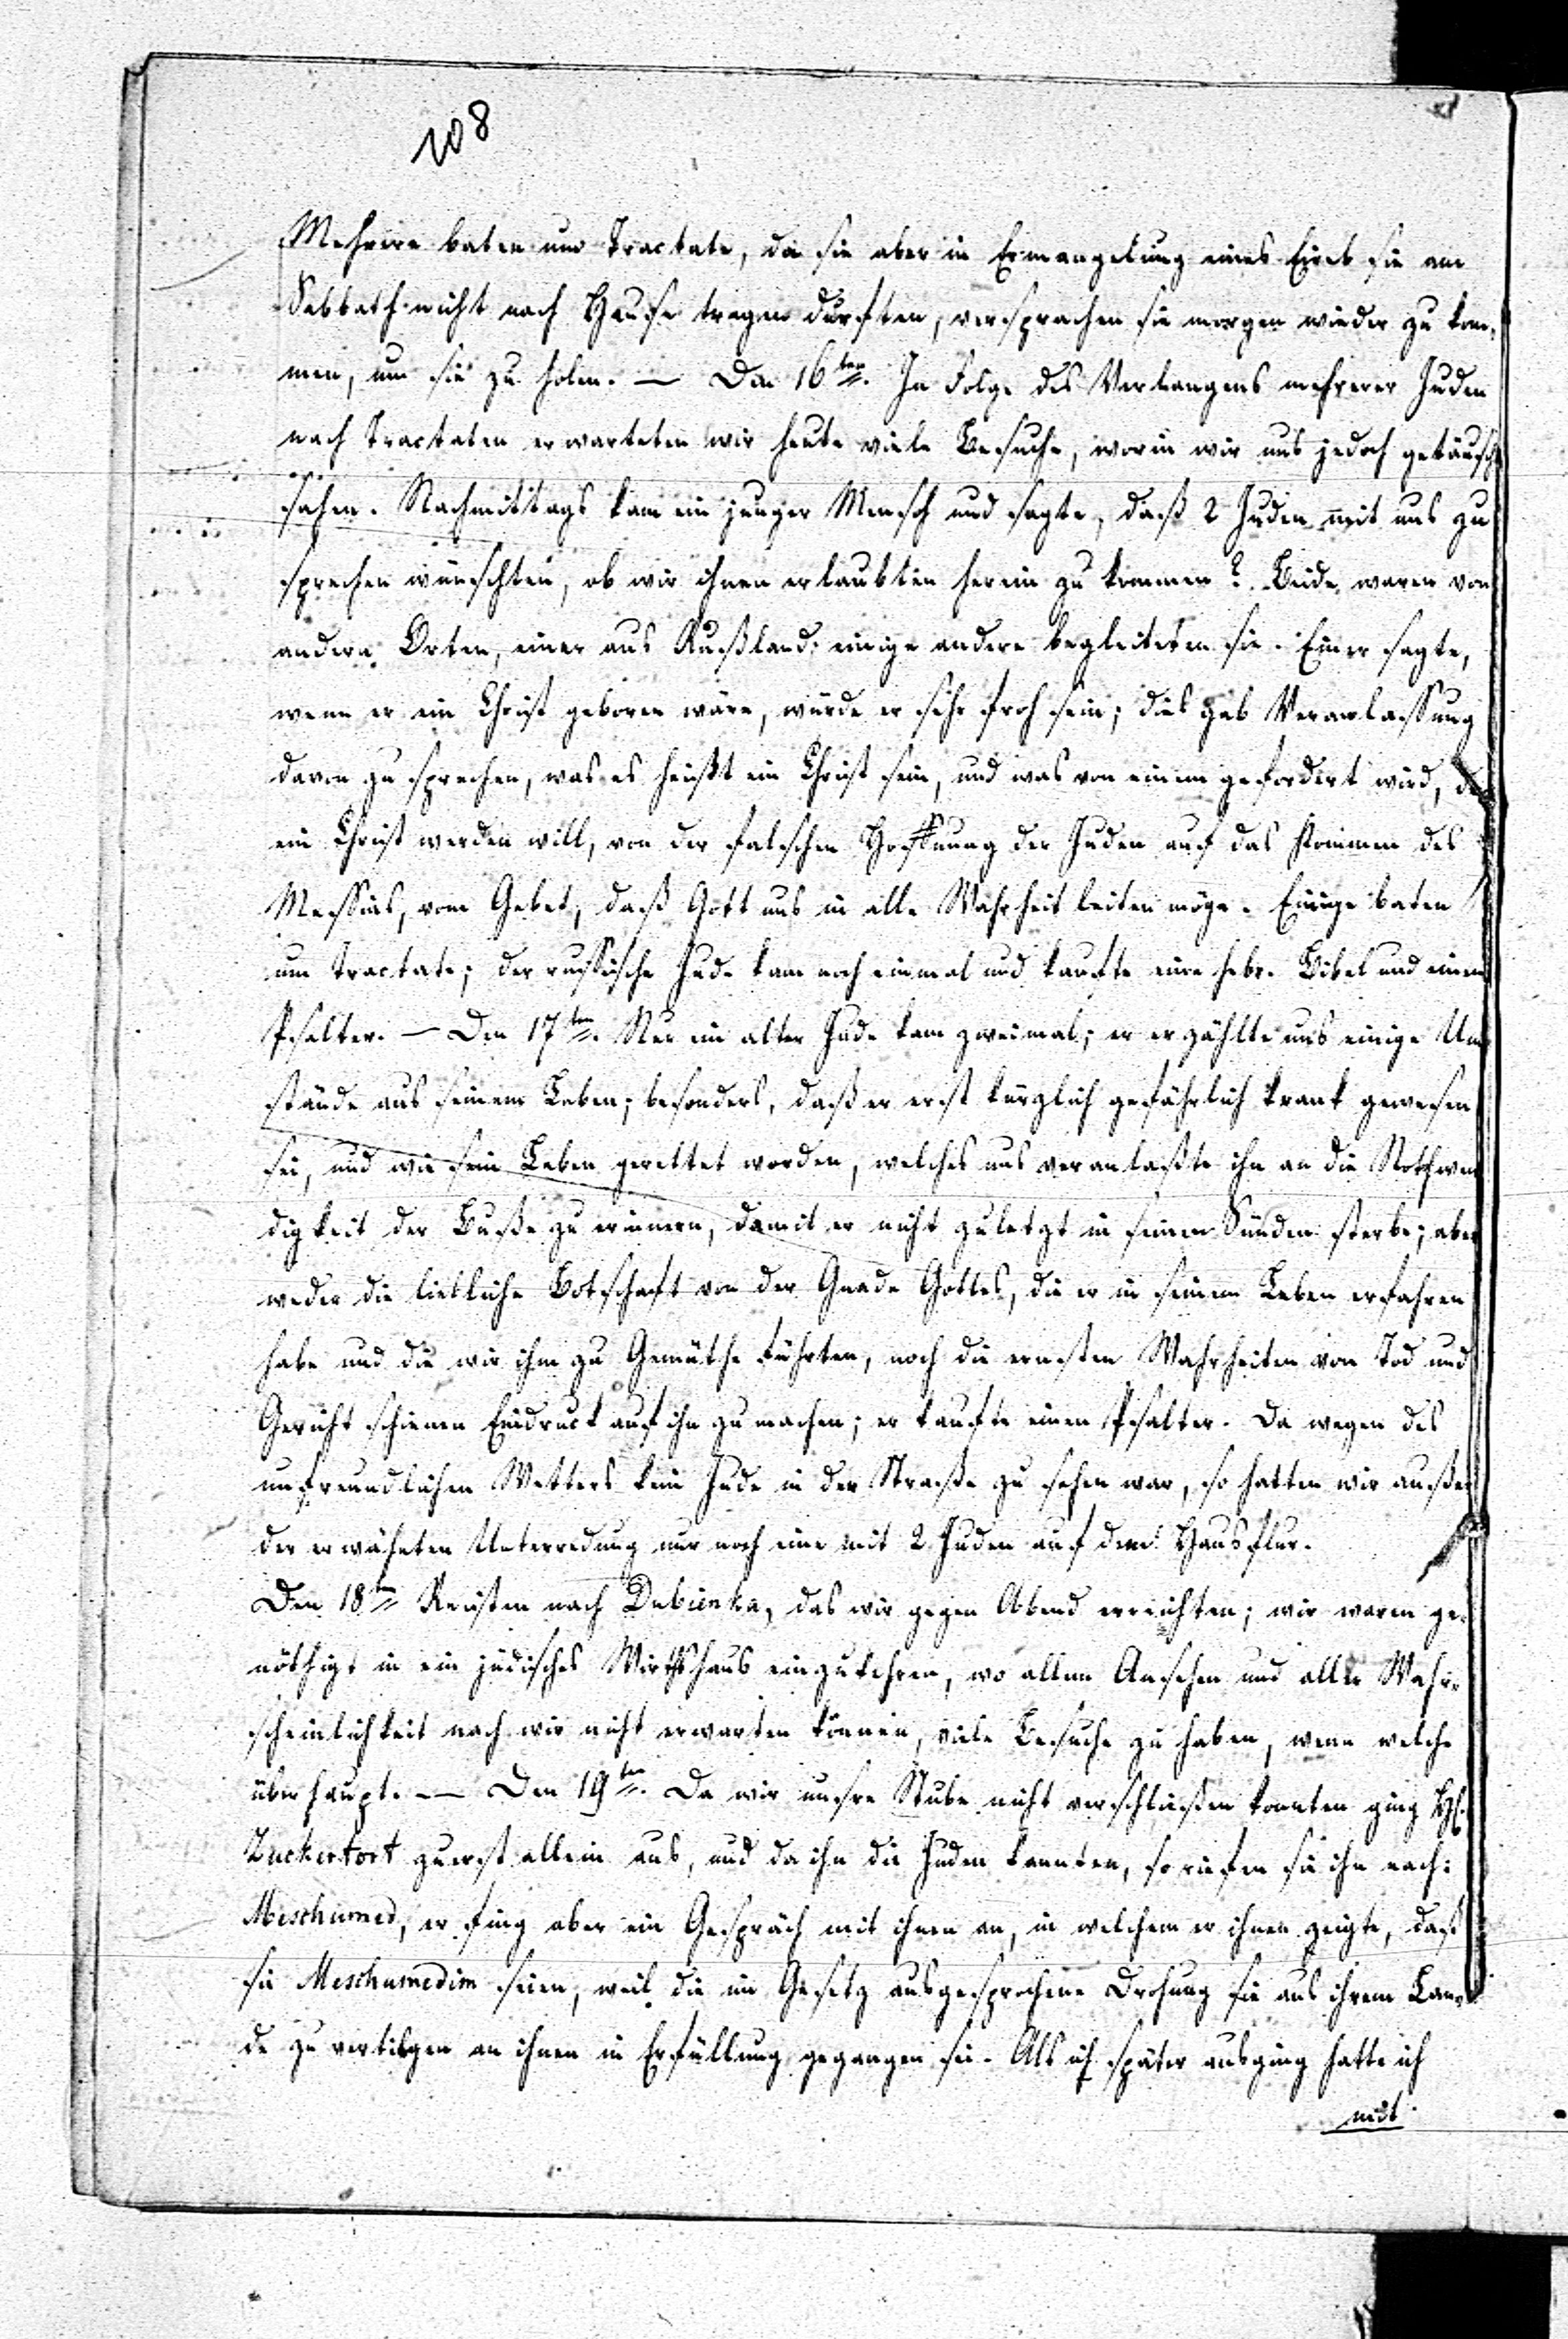 108
Mehrere baten um Tractate, da sie aber in Ermangelung eines Eirub sie am
Sabbath nicht nach Hause tragen durften, versprachen sie morgen wieder zu kom-
men, um sie zu holen. — Den 16ten. In Folge des Verlangens mehrerer Juden
nach Tractaten erwarteten wir heute viele Besuche, worin wir uns jedoch getäuscht
sahen. Nachmittags kam ein junger Mensch und sagte, daß 2 Juden mit uns zu
sprechen wünschten, ob wir ihnen erlaubten herein zu kommen? Beide waren von
andern Orten, einer aus Rußland; einige andere begleiteten sie. Einer sagte,
wenn er ein Christ geboren wäre, würde er sehr froh sein; dies gab Veranlassung
davon zu sprechen, was es heißt ein Christ sein, und was von einem gefordert wird, der
ein Christ werden will, von der falschen Hoffnung der Juden auf das Kommen des
Messias, vom Gebet, daß Gott uns in alle Wahrheit leiten möge. Einige baten
um Tractate; der russische Jude kam noch einmal und kaufte eine hebr. Bibel und einen
Psalter. — Den 17ten. Nur ein alter Jude kam zweimal; er erzählte uns einige Um
stände aus seinem Leben; besonders, daß er erst kürzlich gefährlich krank gewesen
sei, und wie sein Leben gerettet worden, welches uns veranlaßte ihn an die Nothwen
digkeit der Buße zu erinnern, damit er nicht zuletzt in seinen Sünden sterbe; aber
weder die liebliche Botschaft von der Gnade Gottes, die er in seinem Leben erfahren
habe und die wir ihm zu Gemüthe führten, noch die ernsten Wahrheiten von Tod und
Gericht schienen Eindruck auf ihn zu machen; er kaufte einen Psalter. Da wegen des
unfreundlichen Wetters kein Jude in der Straße zu sehen war, so hatten wir außer
der erwähnten Unterredung nur noch eine mit 2 Juden auf dem Hausflur.
Den 18ten Reisten nach Dubienka, das wir gegen Abend erreichten; wir waren ge-
nöthigt in ein jüdisches Wirthshaus einzukehren, wo allem Ansehen und aller Wahr-
scheinlichkeit nach wir nicht erwarten können, viele Besuche zu haben, wenn welche
überhaupt. — Den 19ten. Da wir unsre Stube nicht verschließen konnten ging H.
Zuckertort zuerst allein aus, und da ihn die Juden kannten, so riefen sie ihm nach:
Meschumed, er fing aber ein Gespräch mit ihnen an, in welchem er ihnen zeigte, daß
sie Meschumedim seien, weil die im Gesetz ausgesprochene Drohung sie aus ihrem Lan-
de zu vertilgen an ihnen in Erfüllung gegangen sei. Als ich später ausging hatte ich
mit